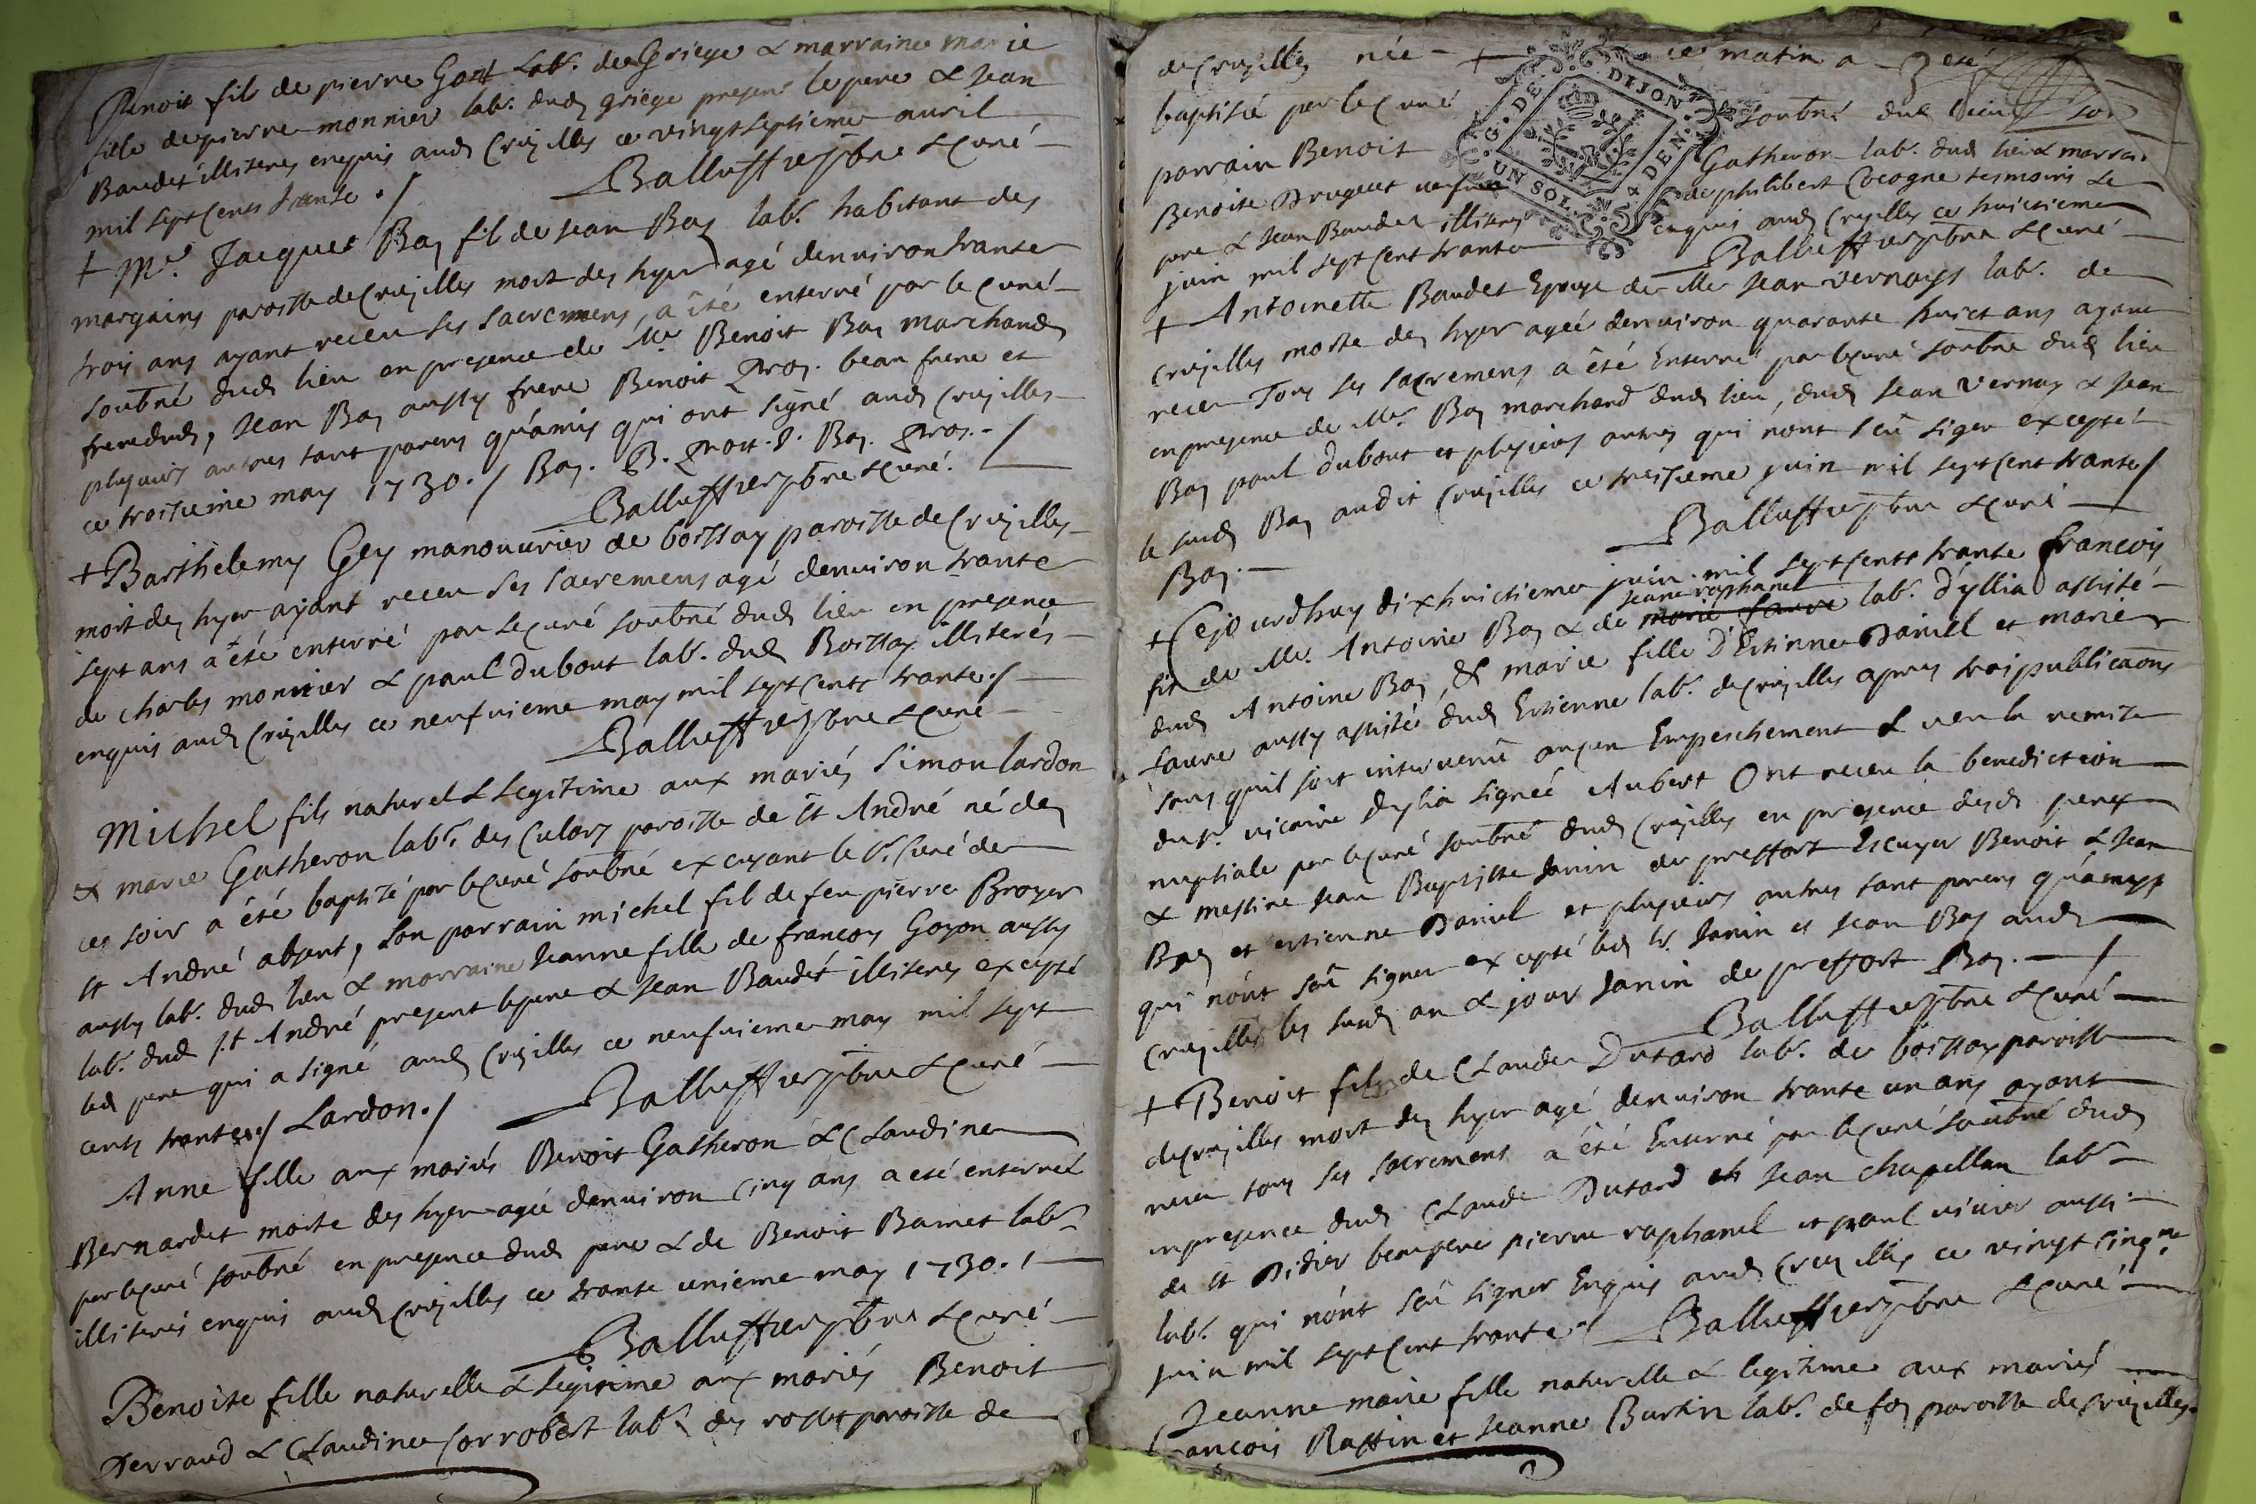 Benoit fils de pierre Gont lab.r de Griege & marraine marie
fille de pierre monnier lab.r dud. griege present le pere & Jean
Baudet illiterés enquis aud. Cruzilles ce vingt septieme avril
mil sept cents trante ./ Balluffier ptre & curé
+ M.e Jacques Bay fils de Jean Bay lab.r habitant des
margains paroisse de Cruzilles mort des hyer agé denviron trante
trois ans ayant receu ses sacremens, a été enterré par le curé
soubné dud. lieu en presence de M.e Benoit Bay marchand
frere dud., Jean Bay aussy frere Benoit Pros. beau frere et
plusieurs autres tant parens qu'ámis qui ont signé aud. Cruzilles
ce troisieme may 1730 ./ Bay. B. Pros. J. Bay. Pros. /
Balluffier ptre & curé.
+ Barthelemy Gey manouvrier de boissay paroisse de Cruzilles
mort des hyer ayant receu ses sacremens agé denviron trante
sept ans a été enterré par le curé soubné dud. lieu en presence
de charles monnier & paul dubout lab.r dud. Boissay illiterés
enquis aud. Cruzilles ce neufvieme may mil sept cents trante ./
Balluffier ptre & curé
Michel fils naturel & legitime aux mariés Simon lardon
& marie Gatheron lab.r des Culas paroisse de St André né de
ce soir a été baptisé par le curé soubné excuzant le Sr. Curé de
St André absent, son parrain michel fils de feu pierre Broyer
aussy lab.r dud. lieu & marraine Jeanne fille de francoy Goyon aussy
lab.r dud. St André present le pere & Jean Baudet illiterés excepté
led. pere qui a signé aud. Cruzilles ce neufvieme may mil sept
cents trante ./ Lardon ./ Balluffier ptre & curé
Anne fille aux mariés Benoit Gatheron & Claudine
Bernardet morte des hyer agée denviron cinq ans a eté enterrée
par le curé soubné en presence dud. pere & de Benoit Barnet lab.r
illiterés enquis aud. Cruzilles ce trante unieme may 1730 ./
Balluffier ptre & curé
Benoite fille naturelle & legitime aux mariés Benoit
Perraud & Claudine Sorrobert lab.r des rosset paroisse de
de Cruzilles née ce matin a eté
baptisée par le curé soubné dud. lieu son
parrain Benoit Gatheron lab.r dud. lieu & marrai.
Benoite Brugeut de philibert Cocogne tesmoins le
pere & Jean Baudet illiterés enquis aud. Cruzilles ce huictieme
juin mil sept cent trante Balluffier ptre & curé
+ Antoinette Baudet Epouse de M.e Jean vernays lab.r de
Cruzilles morte des hyer agée denviron quarante huict ans ayant
receu Tous ses sacremens a été Enterré par le curé soubné dud. lieu
en presence de M.e Bay marchand dud. lieu, dud. Jean Vernay & Jean
Bay paul dubout et plusieurs autres qui nont sceu signer excepté
le sud. Bay audit Cruzilles ce treisieme juin mil sept cent trante /
Bay. Balluffier ptre & curé /
+ Cejourdhuy dixhuictieme juin mil sept cents trante francois
fils de M.e Antoine Bay & de marie faure Jeane raphanel lab.r d'yllia assisté
dud. Antoine Bay, & marie fille D'Estienne Daniel et marie
faure aussy assisté dud. Estienne lab.r de Cruzilles apres trois publicaõns
sans quil soit intervenu aucun Empeschement & veu la remise
du Sr. vicaire d'ylia signée Aubert Ont receu la benediction
nuptiale par le curé soubné dud. Cruzilles en presence desd. peres
& messire Jean Baptiste Janin de preffort Escuyer Benoit & Jean
Bay et estienne Daniel et plusieurs autres tant parens qu'ámys
qui n'ónt sçû signer excepté led. Sr. Janin et Jean Bay aud.
Cruzilles les susd. an & jour Janin de preffort Bay. /
Balluffier ptre & curé
+ Benoit fils de Claude Dutard lab.r de boissay paroisse
de Cruzilles mort des hyer agé denviron trante un ans ayant
receu tous ses sacremens a été Enterré par le curé soubné dud.
en presence dud. Claude Dutard et Jean chapellan lab.r
de St Didier beaupere pierre raphanel et paul vivier aussi
lab.r qui n'ónt sçû signer Enquis aud. Cruzilles ce vingt cinq.me
juin mil sept cent trante / Balluffier ptre & curé
Jeanne marie fille naturelle & legitime aux mariés
francois Raffin et Jeanne Burtin lab.r de foy paroisse de Cruzilles
G. DE DIJON
UN SOL 4 DEN.